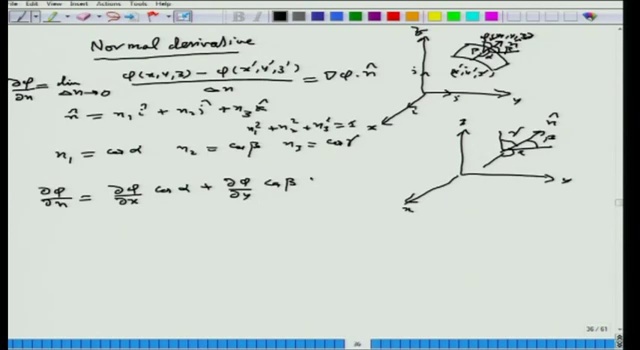 Edit View Insert Actions Tools Help
Normal derivative
∂φ/∂n = lim Δn→0 φ(x,y,z) − φ(x′,y′,z′) / Δn = ∇φ·n̂
n̂ = n₁ î + n₂ ĵ + n₃ k̂
n₁² + n₂² + n₃² = 1
n₁ = cosα n₂ = cosβ n₃ = cosγ
∂φ/∂n = ∂φ/∂x cosα + ∂φ/∂y cosβ
z
y
x
z
n̂
γ
β
α
y
x
36 / 61
36